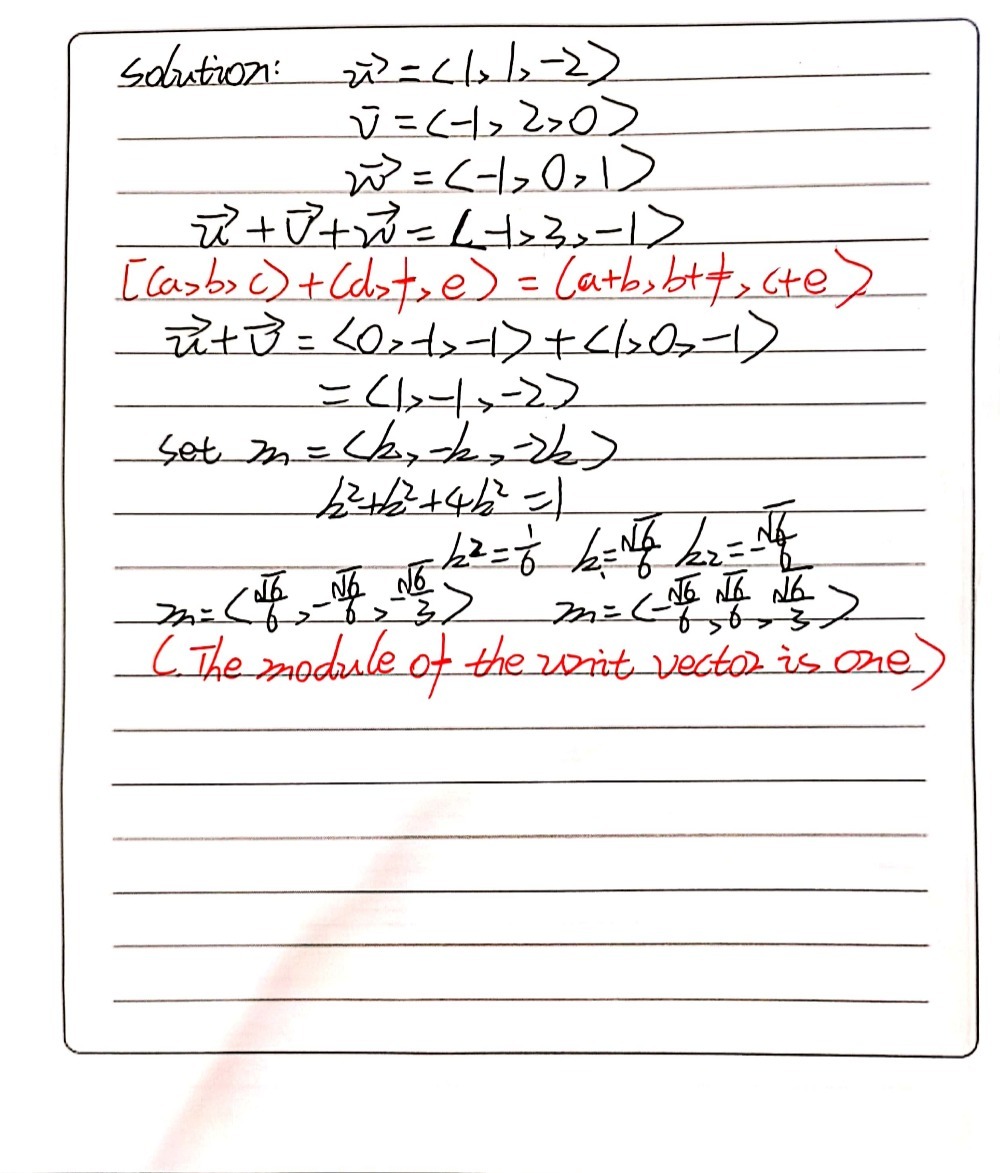 solution: u⃗ = <1, 1, -2>
v̄ = <-1, 2, 0>
w⃗ = <-1, 0, 1>
u⃗ + v⃗ + w⃗ = <-1, 3, -1>
[(a, b, c) + (d, f, e) = (a+b, b+f, c+e)
u⃗ + v⃗ = <0, -1, -1> + <1, 0, -1>
= <1, -1, -2>
set m = <k, -k, -2k>
k²+k²+4k² = 1
k² = 1/6 k₁ = √6/6 k₂ = -√6/6
m = <√6/6, -√6/6, -√6/3> m = <-√6/6, √6/6, √6/3>
(The module of the unit vector is one)